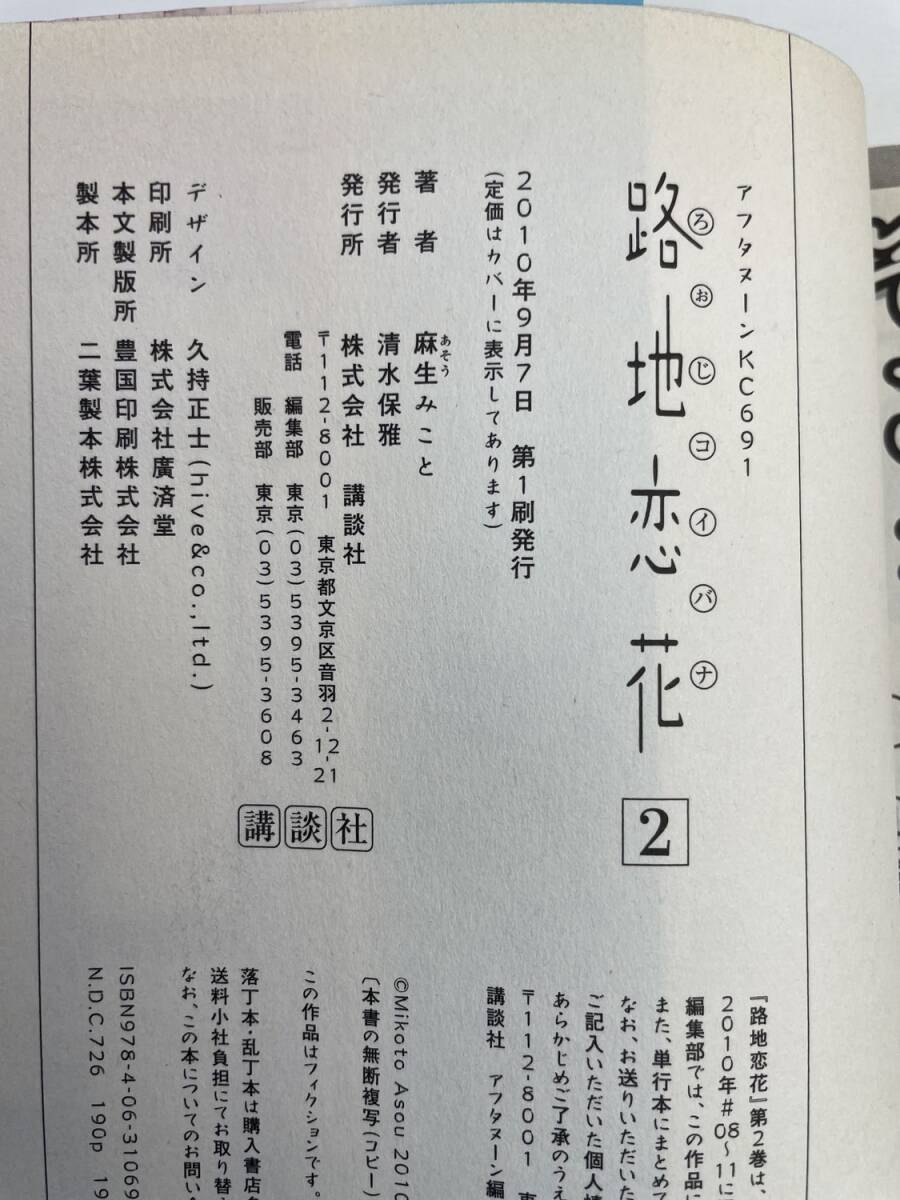 アフタヌーンKC691
路地恋花
ろぉじコイバナ
2
2010年9月7日　第1刷発行
(定価はカバーに表示してあります)
著者　麻生みこと
あそう
発行者　清水保雅
発行所　株式会社　講談社
〒112-8001　東京都文京区音羽2-12-21
電話　編集部　東京(03)5395-3463
販売部　東京(03)5395-3608
講談社
デザイン　久持正士(hive&co.,ltd.)
印刷所　株式会社廣済堂
本文製版所　豊国印刷株式会社
製本所　二葉製本株式会社
『路地恋花』第2巻は、
2010年#08〜11に
編集部では、この作品に
また、単行本にまとめて
なお、お送りいただいた
ご記入いただいた個人情
あらかじめご了承のうえ
〒112-8001　東
講談社　アフタヌーン編
©Mikoto Asou 2010
〔本書の無断複写(コピー)
この作品はフィクションです。
落丁本・乱丁本は購入書店名
送料小社負担にてお取り替
なお、この本についてのお問い
ISBN978-4-06-31069
N.D.C.726　190p　19